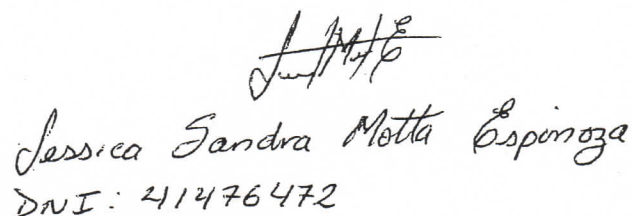 Jessica Sandra Motta Espinoza
DNI: 41476472